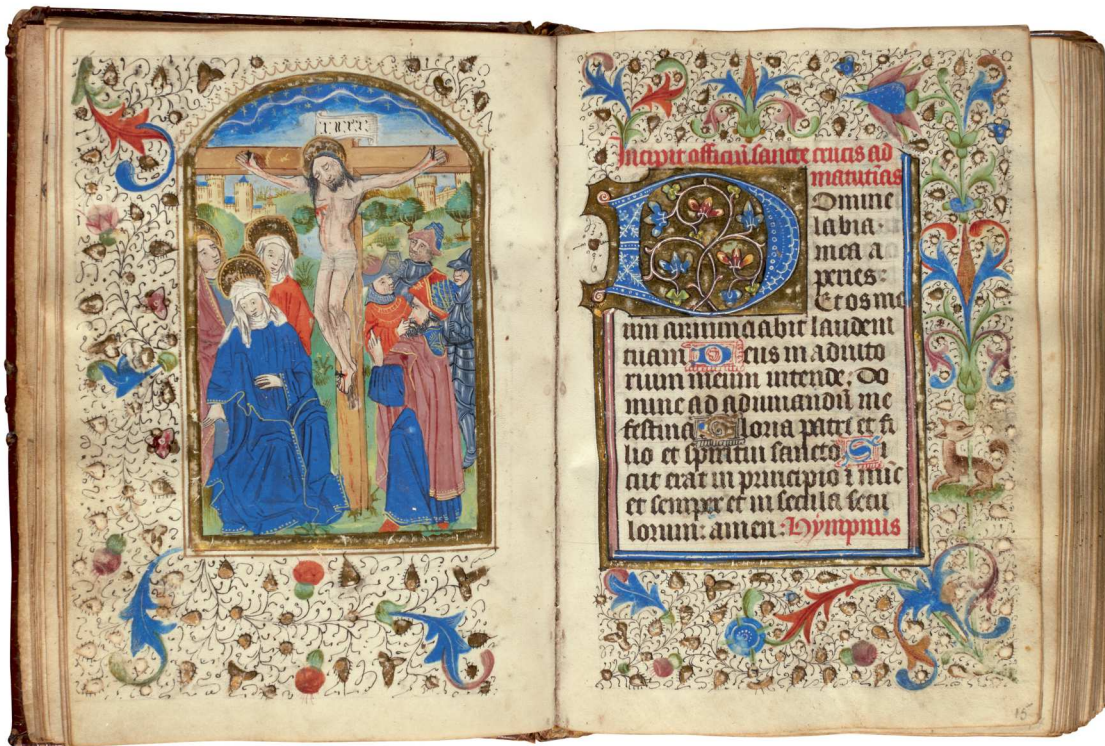 INRI
Incipit officiū sancte crucis ad
matutīas
Domine
labia
mea a
peries
Et os me
um annunciabit laudem
tuam Deus in adiuto
rium meum intende. Do
mine ad adiuuandū me
festina Gloria patri et fi
lio et spiritui sancto Si
cut erat in principio ⁊ nūc
et semper et in secula secu
lorum: amen: Hympnus
15